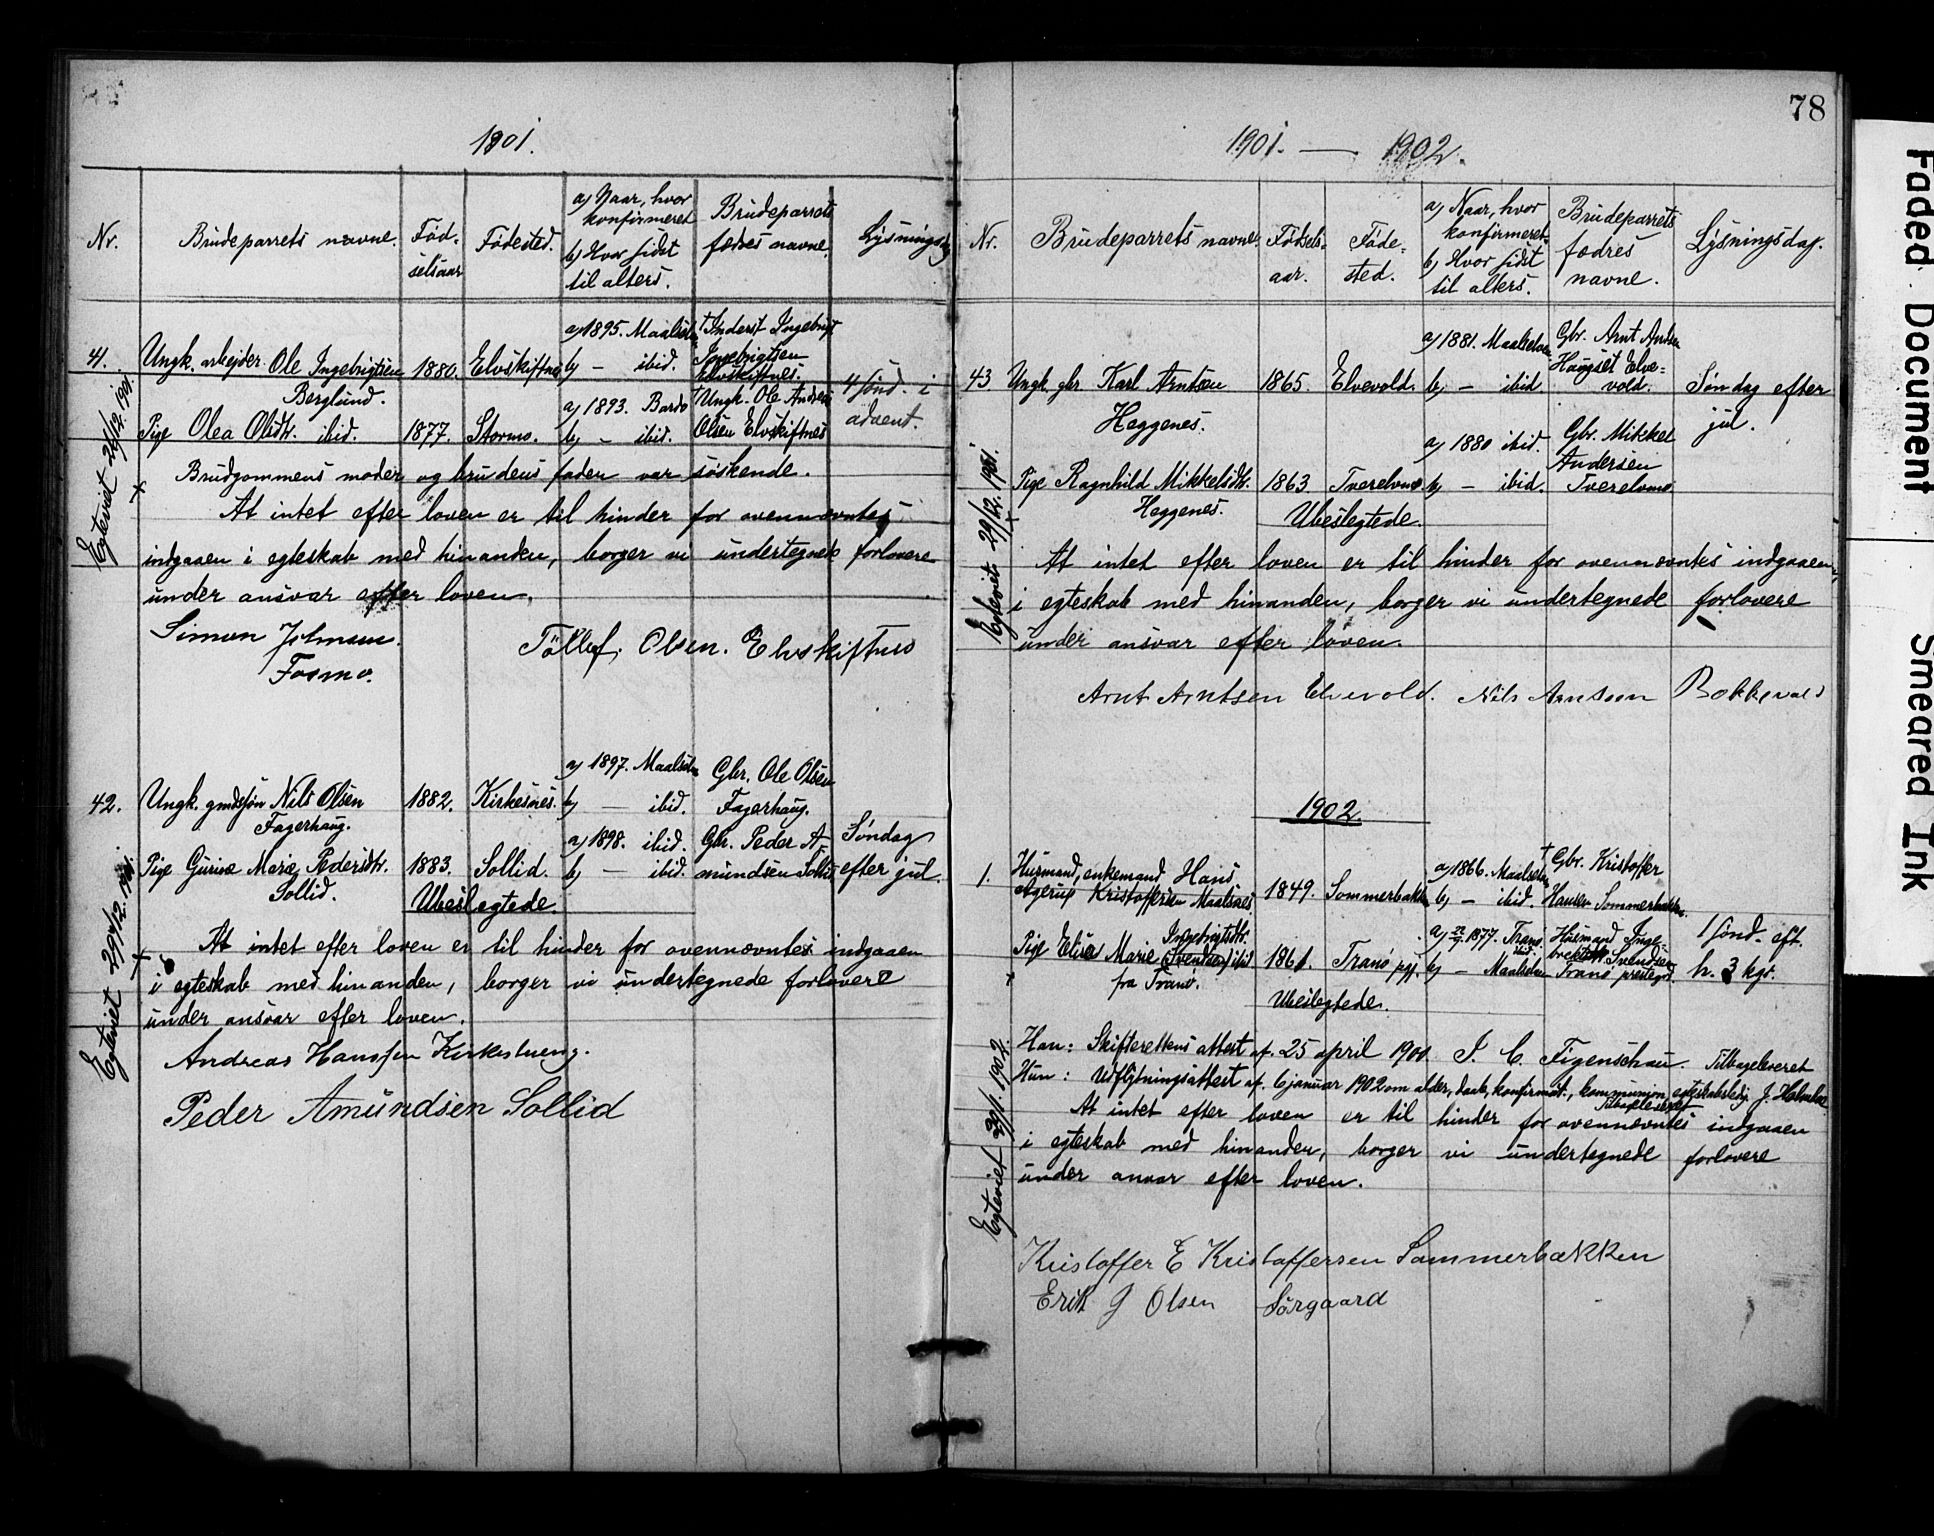 1901.
Nr.
Brudeparrets navne.
Fød-
selsaar
Fødested.
a) Naar, hvor
konfirmeret
b) Hvor sidst
til alters.
Brudeparrets
fædres navne.
Lysningsdag
41.
Ungk. arbejder Ole Ingebrigtsen
Berglund.
1880.
Elvskiftnes
a) 1895. Maalselv
b) — ibid.
Ingebrigt
Ingebrigtsen
Elvskiftnes.
4 sønd. i
advent.
Pige Olea Olsdtr. ibid.
1877.
Stormo.
a) 1893. Bardo
b) — ibid.
† Ungk. Ole Andreas
Olsen Elvskiftnes
Brudgommens moder og brudens fader var søskende.
At intet efter loven er til hinder for ovennævntes
indgaaen i egteskab med hinanden, borger vi undertegnede forlovere
under ansvar efter loven.
Simon Johnsen.
Fosmo.
Tøllef. Olsen. Elvskiftnes
Egteviet 26/12. 1901.
42.
Ungk. gmdssøn Nils Olsen
Fagerhaug.
1882.
Kirkesnes.
a) 1897. Maalselv
b) — ibid.
Gbr. Ole Olsen
Fagerhaug.
Søndag
efter jul.
Pige Gurine Marie Pedersdtr.
Sollid.
1883.
Sollid.
a) 1898. ibid.
b) — ibid.
Gbr. Peder A-
mundsen Sollid
Ubeslegtede.
At intet efter loven er til hinder for ovennævntes indgaaen
i egteskab med hinanden, borger vi undertegnede forlovere
under ansvar efter loven.
Andreas Hanssen Kirkesnes.
Peder Amundsen Sollid
Egteviet 29/12. 1901.
78
1901. — 1902.
Nr.
Brudeparrets navne.
Fødsels-
aar.
Føde-
sted.
a) Naar, hvor
konfirmeret.
b) Hvor sidst
til alters.
Brudeparrets
fædres
navne.
Lysningsdag.
43
Ungk. gbr. Karl Arntsen
Heggenes.
1865.
Elvevold.
a) 1881. Maalselven
b) — ibid
Gbr. Arnt Andr.
Elve-
vold.
Søndag efter
jul.
Pige Ragnhild Mikkelsdtr.
Heggenes.
1863
Tverelvmo
a) 1880 ibid.
b) — ibid.
Gbr. Mikkel
Andersen
Tverelvmo
Ubeslegtede.
At intet efter loven er til hinder for ovennævntes indgaaen
i egteskab med hinanden, borger vi undertegnede forlovere
under ansvar efter loven.
Arnt Arntsen Elvevold. Nils Arntsen Bakkevold
Egteviet 29/12. 1901.
1902.
1.
Husmand, enkemand Hans
Agerup Kristoffersen Maalsnes
1849.
Sommerbakken
a) 1866. Maalselv
b) — ibid.
† Gbr. Kristoffer
Hansen Sommerbakken.
1 sønd. eft.
h. 3 kgr.
Pige Elise Marie Ingebrigtsdtr.
(Svendsen) ibid
fra Tranø.
1861.
Tranø pgj.
a) 1877. Tranø.
b) — Maalselven
Husmand Inge-
brekt Svendsen
Tranø prestegd.
Ubeslegtede.
Han: Skifterettens attest af. 25 april 1900. J. C. Figenschau. Tilbageleveret
Hun: Udflytningsattest af. 6 januar 1902 om alder, daab, konfirmat., kommunion, egteskabsledig.
Tilbageleveret
At intet efter loven er til hinder for ovennævntes indgaaen
i egteskab med hinanden, borger vi undertegnede forlovere
under ansvar efter loven.
Kristoffer E Kristoffersen Sommerbækken
Erik J Olsen Sørgaard
Egteviet 29/1. 1902.
Faded Document
Smeared Ink